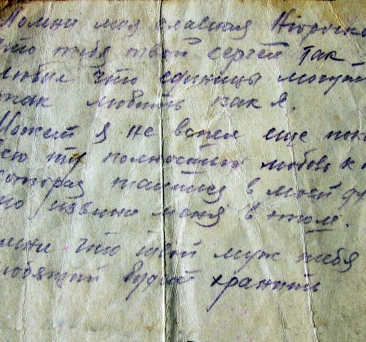 Помни моя славная Нюрочка
что тебя твой сергей так
любил что единицы могут
так любить как я.
Может я не вопел еще пока
всю ту полностью любовь к
которая таится в моей ду
но извини меня в этом.
мни что твой муж тебя
любящий будет хранить